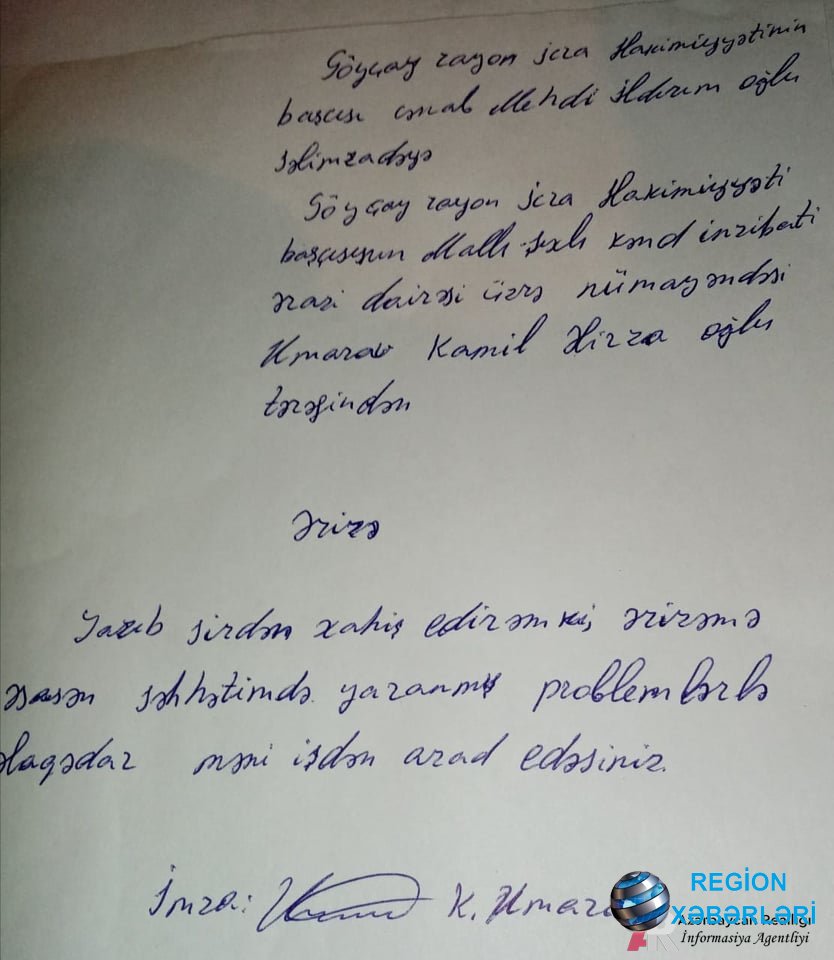 Göyçay rayon İcra Hakimiyyətinin
başçısı cənab Mehdi İldırım oğlu
Səlimzadəyə
Göyçay rayon İcra Hakimiyyəti
başçısının Mallı Şıxlı kənd inzibati
ərazi dairəsi üzrə nümayəndəsi
Umarov Kamil Mirzə oğlu
tərəfindən
Ərizə
Yazıb sizdən xahiş edirəm ki, ərizəmə
əsasən səhhətimdə yaranmış problemlərlə
əlaqədar məni işdən azad edəsiniz.
İmza: K. Umaro
REGİON
XƏBƏRLƏRİ
Azərbaycan Reallığı
İnformasiya Agentliyi